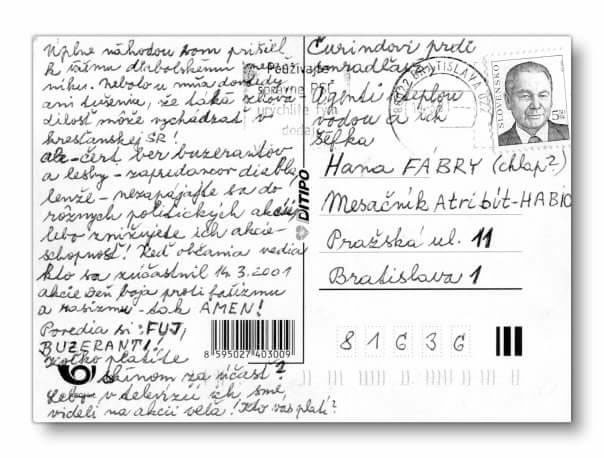 Úplne náhodou som prišiel
k vášmu diabolskému mesač-
níku. Nebolo u mňa dovtedy
ani tušenia, že taká zhova-
dilosť môže vychádzať v
kresťanskej SR!
ale - čert ber buzerantov
a lesby - zapredancov diabla,
lenže - nezapájajte sa do
rôznych politických akcií,
lebo znižujete ich akcie-
schopnosť! Keď občania vedia
kto sa zúčastnil 14.3.2001
akcie Deň boja proti fašizmu
a rasizmu - tak AMEN!
Povedia si: FUJ,
BUZERANTI!
koľko platíte
za účasť?
v televízii ich sme
videli na akcii veľa! Kto vás platí?
Čurindovi prdi
Agenti s teplou
vodou a ich
šéfka
Hana FÁBRY (chlap?)
Mesačník Atribút-HABIO
Pražská ul. 11
Bratislava 1
81636
Používajte
správne PSČ
urýchlite tým
SLOVENSKO
BRATISLAVA
DITIPO
8 595027 403009